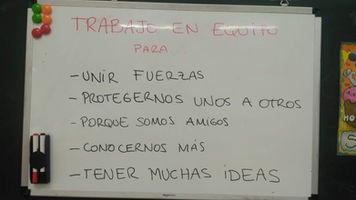 TRABAJO EN EQUIPO
PARA...
- UNIR FUERZAS
- PROTEGERNOS UNOS A OTROS
- PORQUE SOMOS AMIGOS
- CONOCERNOS MÁS
- TENER MUCHAS IDEAS